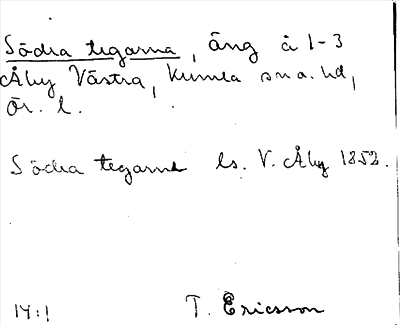 Södra tegarna, äng å 1-3
Åby Västra, Kumla sn o. hd,
Ör. l.
Södra tegarne ls. V. Åby 1852.
14:1 T. Ericsson